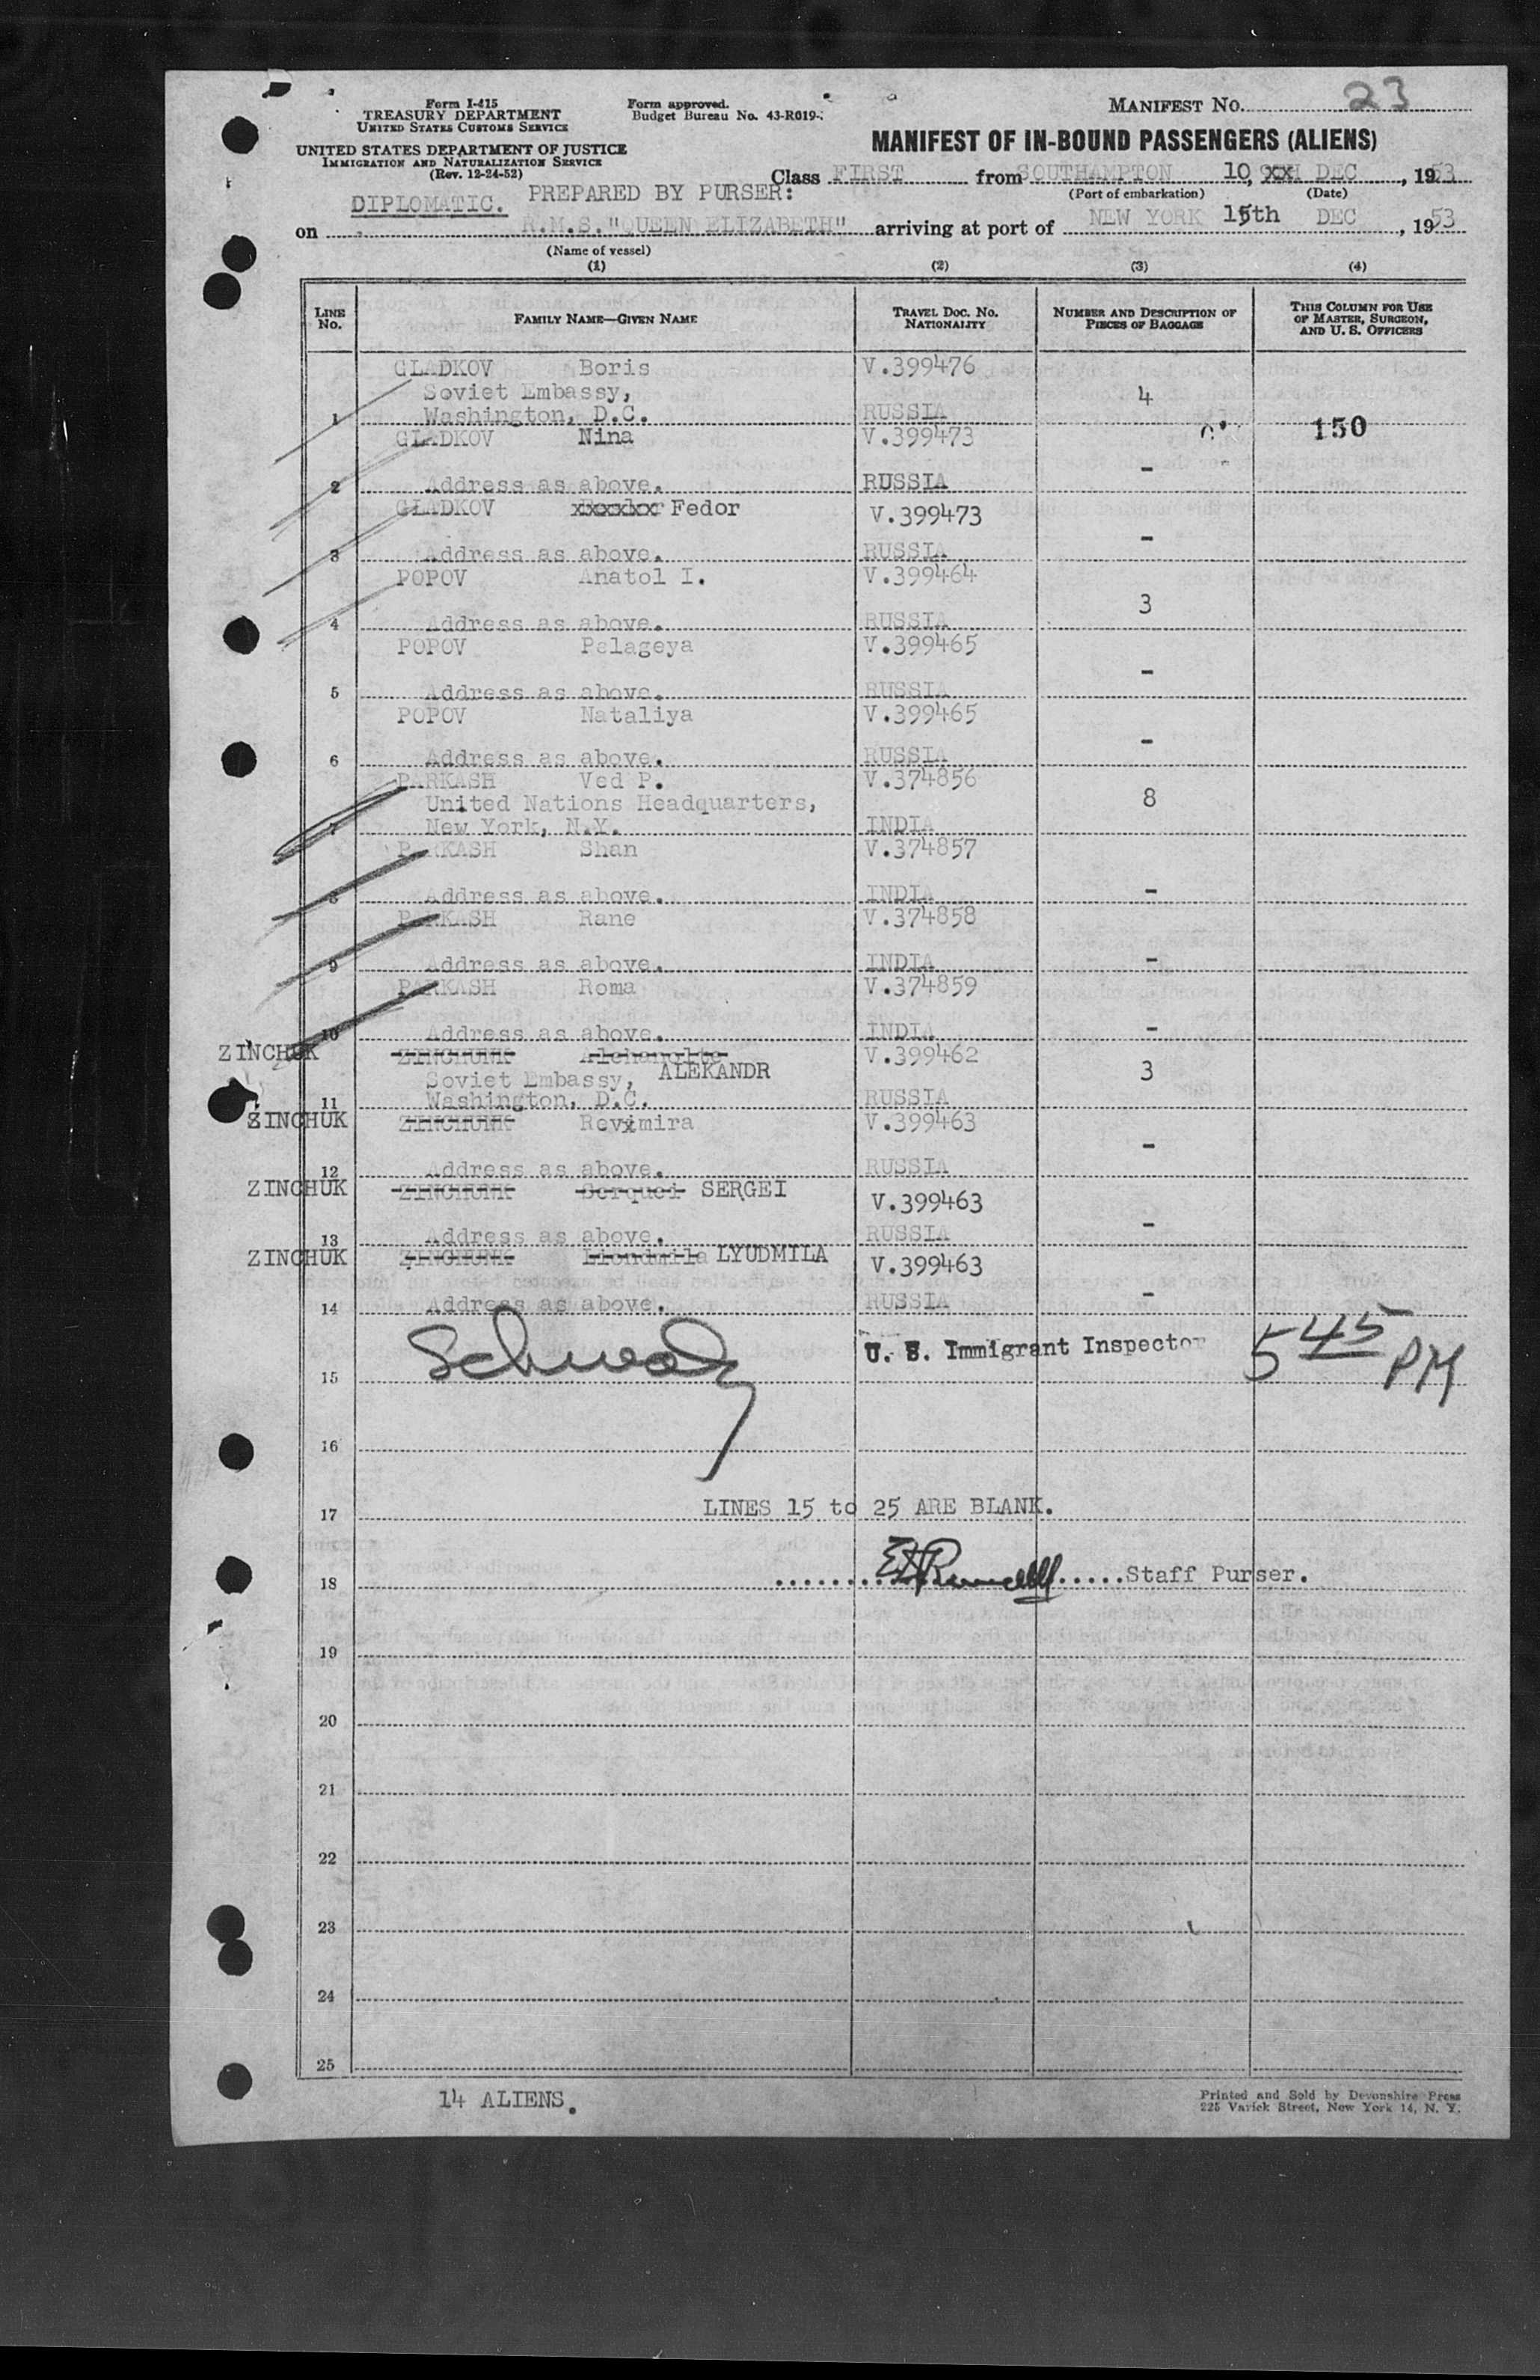 Form I-415
TREASURY DEPARTMENT
UNITED STATES CUSTOMS SERVICE
UNITED STATES DEPARTMENT OF JUSTICE
IMMIGRATION AND NATURALIZATION SERVICE
(Rev. 12-24-52)
Form approved.
Budget Bureau No. 43-R019-
MANIFEST NO. 23
MANIFEST OF IN-BOUND PASSENGERS (ALIENS)
Class FIRST from SOUTHAMPTON 10, DEC, 1953
(Port of embarkation) (Date)
DIPLOMATIC. PREPARED BY PURSER:
on R.M.S."QUEEN ELIZABETH" arriving at port of NEW YORK 15th DEC, 1953
(Name of vessel)
(1) (2) (3) (4)
LINE No. FAMILY NAME—GIVEN NAME TRAVEL DOC. No. NATIONALITY NUMBER AND DESCRIPTION OF PIECES OF BAGGAGE THIS COLUMN FOR USE OF MASTER, SURGEON, AND U. S. OFFICERS
GLADKOV Boris V.399476
Soviet Embassy, 4
1 Washington, D.C. RUSSIA 150
GLADKOV Nina V.399473
-
2 Address as above. RUSSIA
GLADKOV xxxxxx Fedor V.399473
-
3 Address as above. RUSSIA
POPOV Anatol I. V.399464
3
4 Address as above. RUSSIA
POPOV Pelageya V.399465
-
5 Address as above. RUSSIA
POPOV Nataliya V.399465
-
6 Address as above. RUSSIA
PARKASH Ved P. V.374856
United Nations Headquarters, 8
7 New York, N.Y. INDIA
PARKASH Shan V.374857
8 Address as above. INDIA -
PARKASH Rane V.374858
9 Address as above. INDIA -
PARKASH Roma V.374859
10 Address as above. INDIA -
ZINCHUK ZINCHUNK V.399462
Soviet Embassy, ALEKANDR 3
11 Washington, D.C. RUSSIA
ZINCHUK ZINCHUNK Revimira V.399463
-
12 Address as above. RUSSIA
ZINCHUK ZINCHUNK Serquei SERGEI V.399463
-
13 Address as above. RUSSIA
ZINCHUK ZINCHUNK Lioudmila LYUDMILA V.399463
14 Address as above. RUSSIA -
Schwarz U. S. Immigrant Inspector 5 45 PM
15
16
LINES 15 to 25 ARE BLANK.
17
18 Staff Purser.
19
20
21
22
23
24
25
14 ALIENS.
Printed and Sold by Devonshire Press
225 Varick Street, New York 14, N. Y.